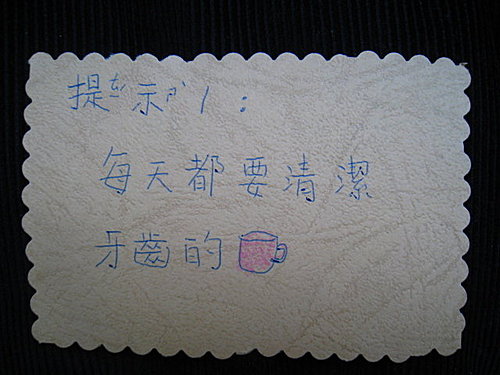 提示1：
每天都要清潔
牙齒的